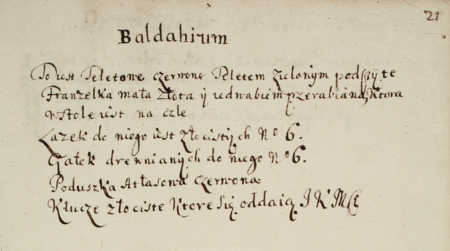 21
Baldahium
To iest Teletowe czerwone Teletem zielonym podszyte
Franzelka mała złota ÿ iedwabiem przerabiana, ktora
w stole iest na czele
Lazek do niego iest złocistych Nº 6.
Gałek drewnianych do niego Nº 6.
Poduszka Atłasowa czerwona
Klucze złociste ktore się oddaią J K M